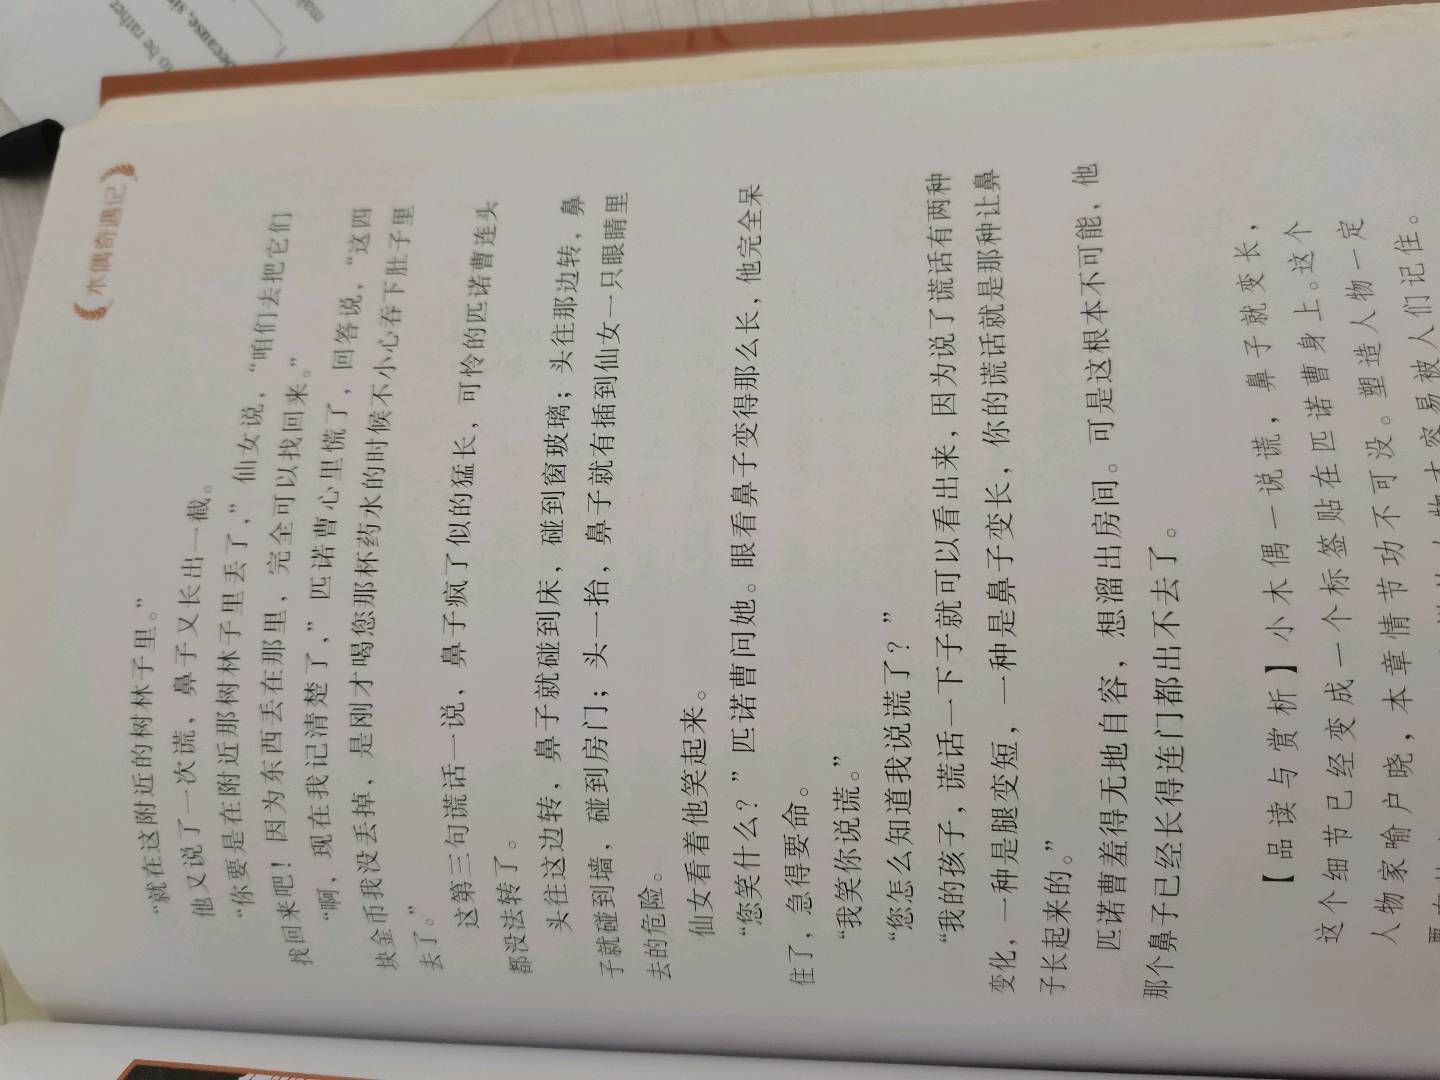 木偶奇遇记
“就在这附近的树林子里。”
他又说了一次谎，鼻子又长出一截。
“你要是在附近那树林子里丢了，”仙女说，“咱们去把它们
找回来吧！因为东西丢在那里，完全可以找回来。”
“啊，现在我记清楚了，”匹诺曹心里慌了，回答说，“这四
块金币我没丢掉，是刚才喝您那杯药水的时候不小心吞下肚子里
去了。”
这第三句谎话一说，鼻子疯了似的猛长，可怜的匹诺曹连头
都没法转了。
头往这边转，鼻子就碰到床，碰到窗玻璃；头往那边转，鼻
子就碰到墙，碰到房门；头一抬，鼻子就有插到仙女一只眼睛里
去的危险。
仙女看着他笑起来。
“您笑什么？”匹诺曹问她。眼看鼻子变得那么长，他完全呆
住了，急得要命。
“我笑你说谎。”
“您怎么知道我说谎了？”
“我的孩子，谎话一下子就可以看出来，因为说了谎话有两种
变化，一种是腿变短，一种是鼻子变长，你的谎话就是那种让鼻
子长起来的。”
匹诺曹羞得无地自容，想溜出房间。可是这根本不可能，他
那个鼻子已经长得连门都出不去了。
【品读与赏析】小木偶一说谎，鼻子就变长，
这个细节已经变成一个标签贴在匹诺曹身上。这个
人物家喻户晓，本章情节功不可没。塑造人物一定
物才容易被人们记住。
to be rather
because, si
1.
mak